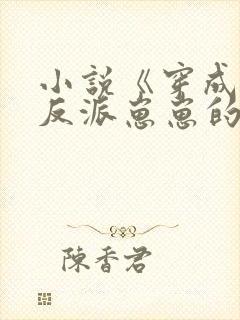 小説《穿成
反派崽崽的
陳香君